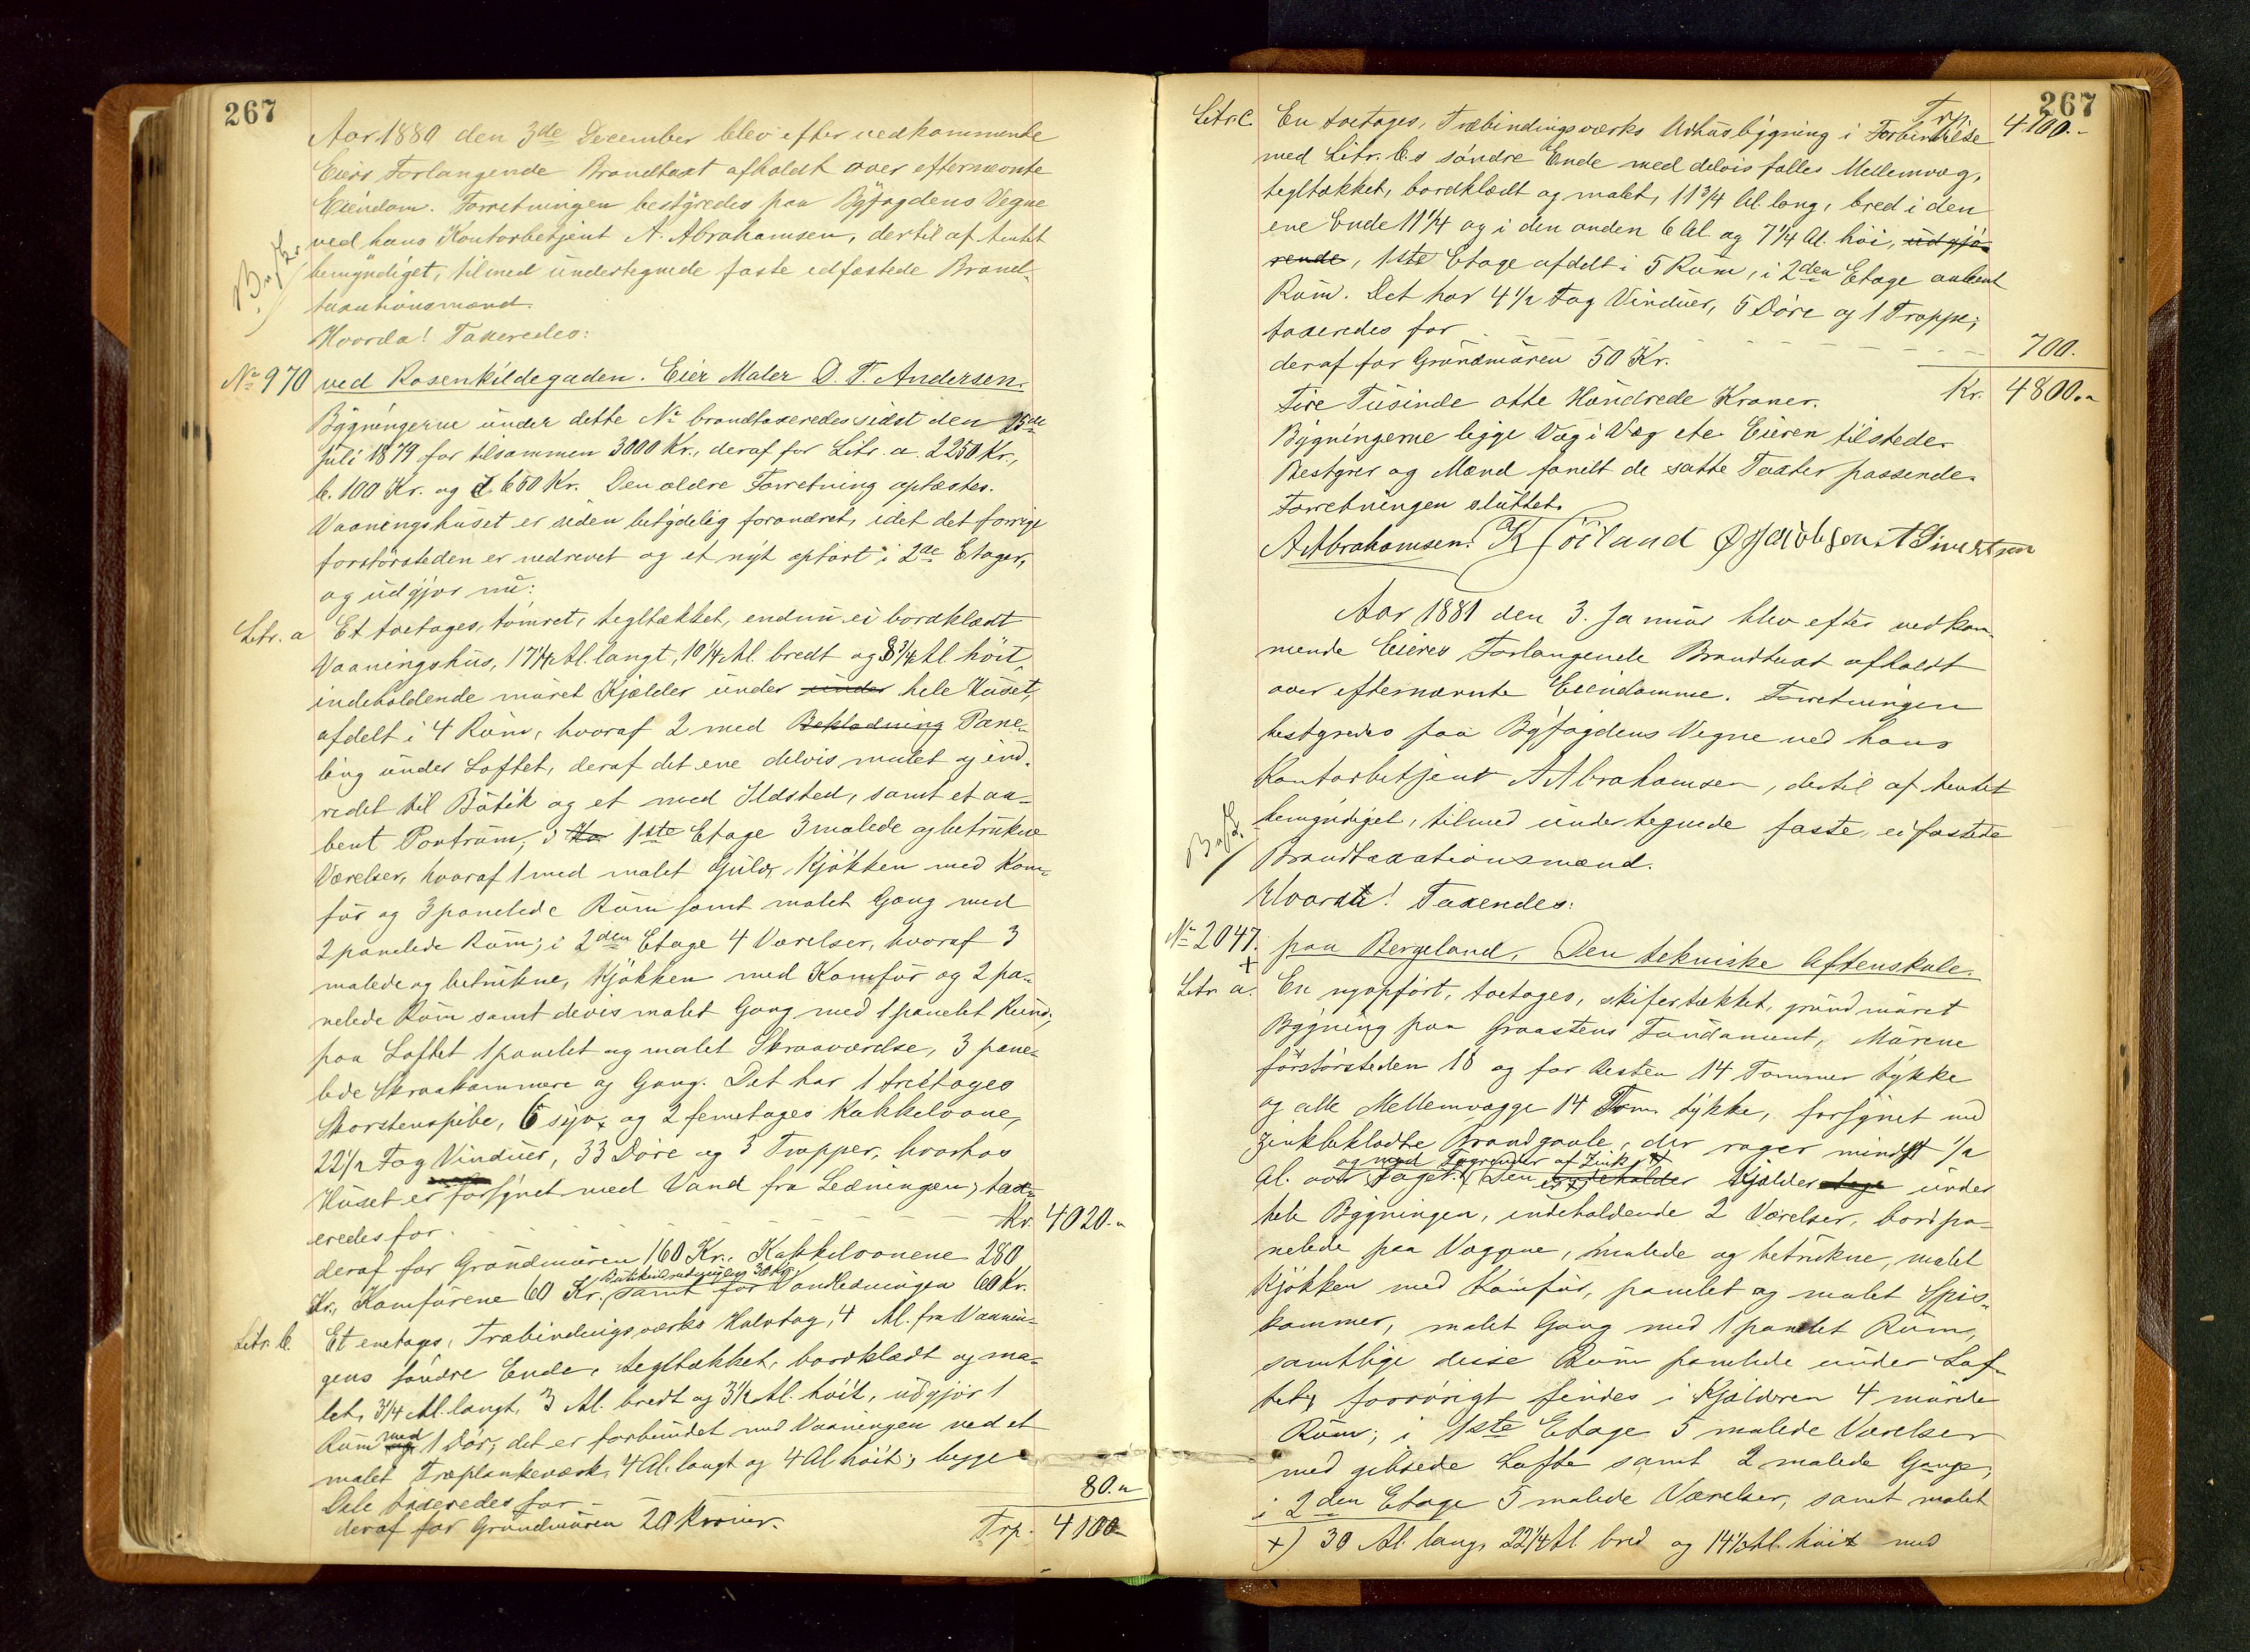 267
Aar 1880 den 3de December blev efter vedkommende
Eiers Forlangende Brandtaxt afholdt over efternævnte
Eiendom. Forretningen bestyredes paa Byfogdens Vegne
ved hans Kontorbetjent A. Abrahamsen, dertil af Amtet
bemyndiget, tilmed undertegnede faste edfæstede Brand-
taxationsmænd.
Hvorda! Taxeredes:
No 970 ved Rosenkildegaden. Eier Maler D. T. Andersen.
Bygningerne under dette No brandtaxeredes sidst den 25de
Juli 1879 for tilsammen 3000 Kr., deraf for Litr. a. 2250 Kr.,
b. 100 Kr. og c 650 Kr. Den ældre Forretning oplæstes.
Vaaningshuset er siden betydelig forandret, idet det forrige
forstörsteden er nedrevet og et nyt opfört i 2de Etager,
og udgjör nu:
Litr. a Et toetages, tömret, tegltækket, endnu ei bordklædt
Vaaningshus, 17 1/4 Al. langt, 10 1/4 Al. bredt og 8 3/4 Al höit,
indeholdende muret Kjælder under under hele Huset,
afdelt i 4 Rum, hvoraf 2 med Beklædning Pane-
ling under Loftet, deraf det ene delvis malet og ind-
redet til Butik og et med Ildsted, samt et aa-
bent Portrum, i 1ste Etage 3 malede og betrukne
Værelser, hvoraf 1 med malet Gulv, Kjökken med Kom-
fur og 3 panelede Rum samt malet Gang med
2 panelede Rum; i 2den Etage 4 Værelser, hvoraf 3
malede og betrukne, Kjökken med Komfur og 2 pa-
nelede Rum samt devis malet Gang med 1 panelet Rum;
paa Loftet 1 panelet og malet Skraaværelse, 3 pane-
lede Skraakammere og Gang. Det har 1 treetages
Skorstenspibe, 6 syv- og 2 femetages Kakkelovne,
22 1/2 Fag Vinduer, 33 Döre og 3 Trapper, hvorhos
Huset er forsynet med Vand fra Ledningen; tax-
eredes for Kr. 4020.-
deraf for Grundmuren 160 Kr., Kakkelovnene 280
Kr., Komfurene 60 Kr., Butikindredningen 30 Kr. samt for Vandledningen 60 Kr.
Litr. b. Et enetages, Træbindingsværks Halvtag, 4 Al. fra Vaanin-
gens söndre Ende, tegltækket, bordklædt og ma-
let, 3 1/4 Al. langt, 3 Al. bredt og 3 1/2 Al. höit, udgjör 1
Rum og med 1 Dör; det er forbundet med Vaaningen ved et
malet Træplankeværk, 4 Al. langt og 4 Al höit; begge
Dele taxeredes for 80.-
deraf for Grundmuren 20 Kroner.
Trp. 4100-
267
Trp. 4100.-
Litr. c. En toetages, Træbindingsværks Udhusbygning i Forbindelse
med Litr. b.s söndre Ende med delvis fælles Mellemvæg,
tegltækket, bordklædt og malet, 11 3/4 Al. lang, bred i den
ene Ende 11 1/4 og i den anden 6 Al. og 7 1/4 Al. höi, udgjö-
rende, 1ste Etage afdelt i 5 Rum, i 2den Etage aabent
Rum. Det har 4 1/2 Fag Vinduer, 5 Döre og 1 Trappe;
taxeredes for 700.
deraf for Grundmuren 50 Kr.
Kr. 4800.-
Fire Tusinde otte Hundrede Kroner.
Bygningerne ligge Væg i Væg etc. Eieren tilstede.
Bestyrer og Mænd fandt de satte Taxter passende.
Forretningen sluttet.
A Abrahamsen. K Höiland Ø Jacobsen A Sivertsen
Aar 1881 den 3. Januar blev efter vedkom-
mende Eieres Forlangende Brandtaxt afholdt
over efternævnte Eiendomme. Forretningen
bestyredes paa Byfogdens Vegne ved hans
Kontorbetjent A Abrahamsen, dertil af Amtet
bemyndiget, tilmed undertegnede faste, edfæstede
Brandtaxationsmænd.
Hvorda! Taxeredes:
No 2047. paa Bergeland. Den tekniske Aftenskole.
Litr. a. En nyopfört, toetages, skifertækket, grundmuret
Bygning paa Graastens Fundament, Murene
förstörsteden 18 og for Resten 14 Tommer tykke
og alle Mellemvægge 14 Tom. tykke, forsynet med
zinkbeklædte Brandgavle, der rager mindst 1/2
Al. over Taget og med Tagrender af Zink x) Den indeholder Kjælder under
hele Bygningen, indeholdende 2 Værelser, bordpa-
nelede paa Væggene, malede og betrukne, malet
Kjökken med Komfur, panelet og malet Spis-
kammer, malet Gang med 1 panelet Rum,
samtlige disse Rum panelede under Lof-
tet; forövrigt findes i Kjælderen 4 murede
Rum; i 1ste Etage 5 malede Værelser
med gibsede Lofte samt 2 malede Gange;
i 2den Etage 5 malede Værelser, samt malet
x) 30 Al. lang, 22 1/4 Al. bred og 14 1/2 Al. höi med